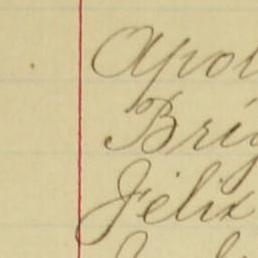 Apol
Brig
Felix